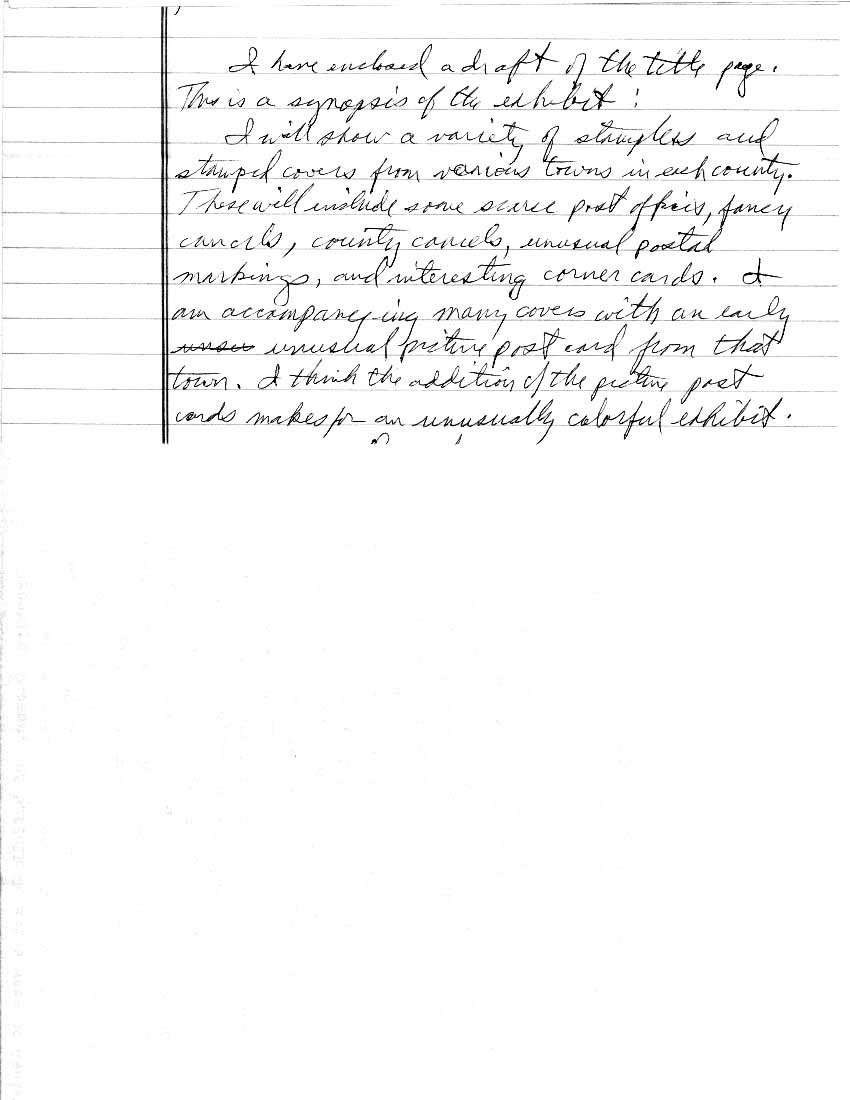 I have enclosed a draft of the title page.
This is a synopsis of the exhibit:
I will show a variety of stampless and
stamped covers from various towns in each county.
These will include some scarce post offices, fancy
cancels, county cancels, unusual postal
markings, and interesting corner cards. I
am accompaneying many covers with an early
unusual picture post card from that
town. I think the addition of the picture post
cards makes for an unusually colorful exhibit.